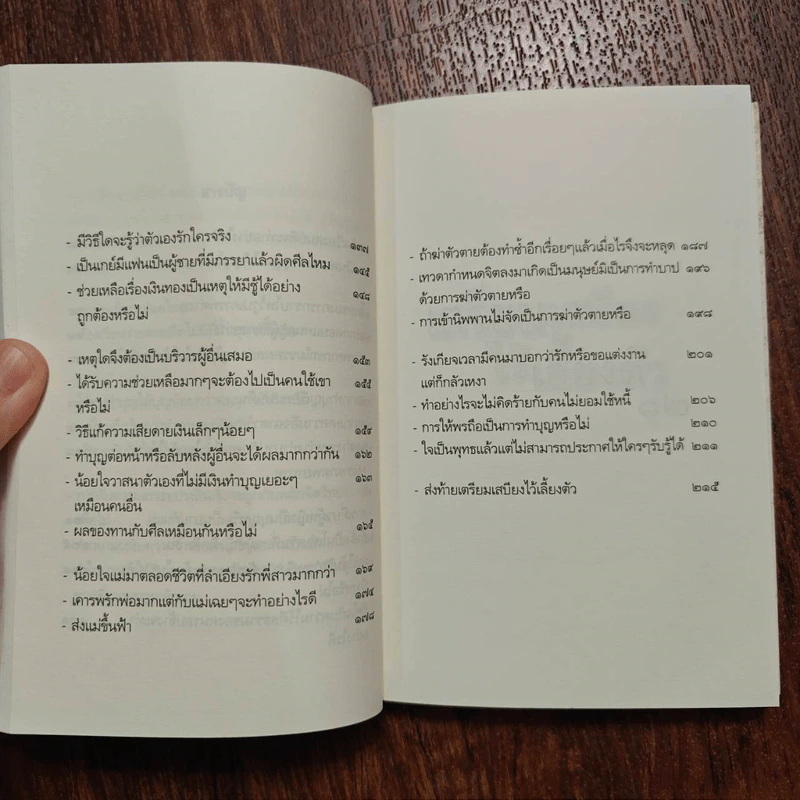 - มีวิธีใดจะรู้ว่าตัวเองรักใครจริง ๑๓๗
- เป็นเกย์มีแฟนเป็นผู้ชายที่มีภรรยาแล้วผิดศีลไหม ๑๔๕
- ช่วยเหลือเรื่องเงินทองเป็นเหตุให้มีชู้ได้อย่าง ๑๔๘
ถูกต้องหรือไม่
- เหตุใดจึงต้องเป็นบริวารผู้อื่นเสมอ ๑๕๓
- ได้รับความช่วยเหลือมากๆจะต้องไปเป็นคนใช้เขา ๑๕๕
หรือไม่
- วิธีแก้ความเสียดายเงินเล็กๆน้อยๆ ๑๕๙
- ทำบุญต่อหน้าหรือลับหลังผู้อื่นจะได้ผลมากกว่ากัน ๑๖๒
- น้อยใจวาสนาตัวเองที่ไม่มีเงินทำบุญเยอะๆ ๑๖๓
เหมือนคนอื่น
- ผลของทานกับศีลเหมือนกันหรือไม่ ๑๖๕
- น้อยใจแม่มาตลอดชีวิตที่ลำเอียงรักพี่สาวมากกว่า ๑๖๙
- เคารพรักพ่อมากแต่กับแม่เฉยๆจะทำอย่างไรดี ๑๗๔
- ส่งแม่ขึ้นฟ้า ๑๗๘
- ถ้าฆ่าตัวตายต้องทำซ้ำอีกเรื่อยๆแล้วเมื่อไรจึงจะหลุด ๑๘๗
- เทวดากำหนดจิตลงมาเกิดเป็นมนุษย์มิเป็นการทำบาป ๑๙๖
ด้วยการฆ่าตัวตายหรือ
- การเข้านิพพานไม่จัดเป็นการฆ่าตัวตายหรือ ๑๙๘
- รังเกียจเวลามีคนมาบอกว่ารักหรือขอแต่งงาน ๒๐๑
แต่ก็กลัวเหงา
- ทำอย่างไรจะไม่คิดร้ายกับคนไม่ยอมใช้หนี้ ๒๐๖
- การให้พรถือเป็นการทำบุญหรือไม่ ๒๑๐
- ใจเป็นพุทธแล้วแต่ไม่สามารถประกาศให้ใครๆรับรู้ได้ ๒๑๑
- ส่งท้ายเตรียมเสบียงไว้เลี้ยงตัว ๒๑๕